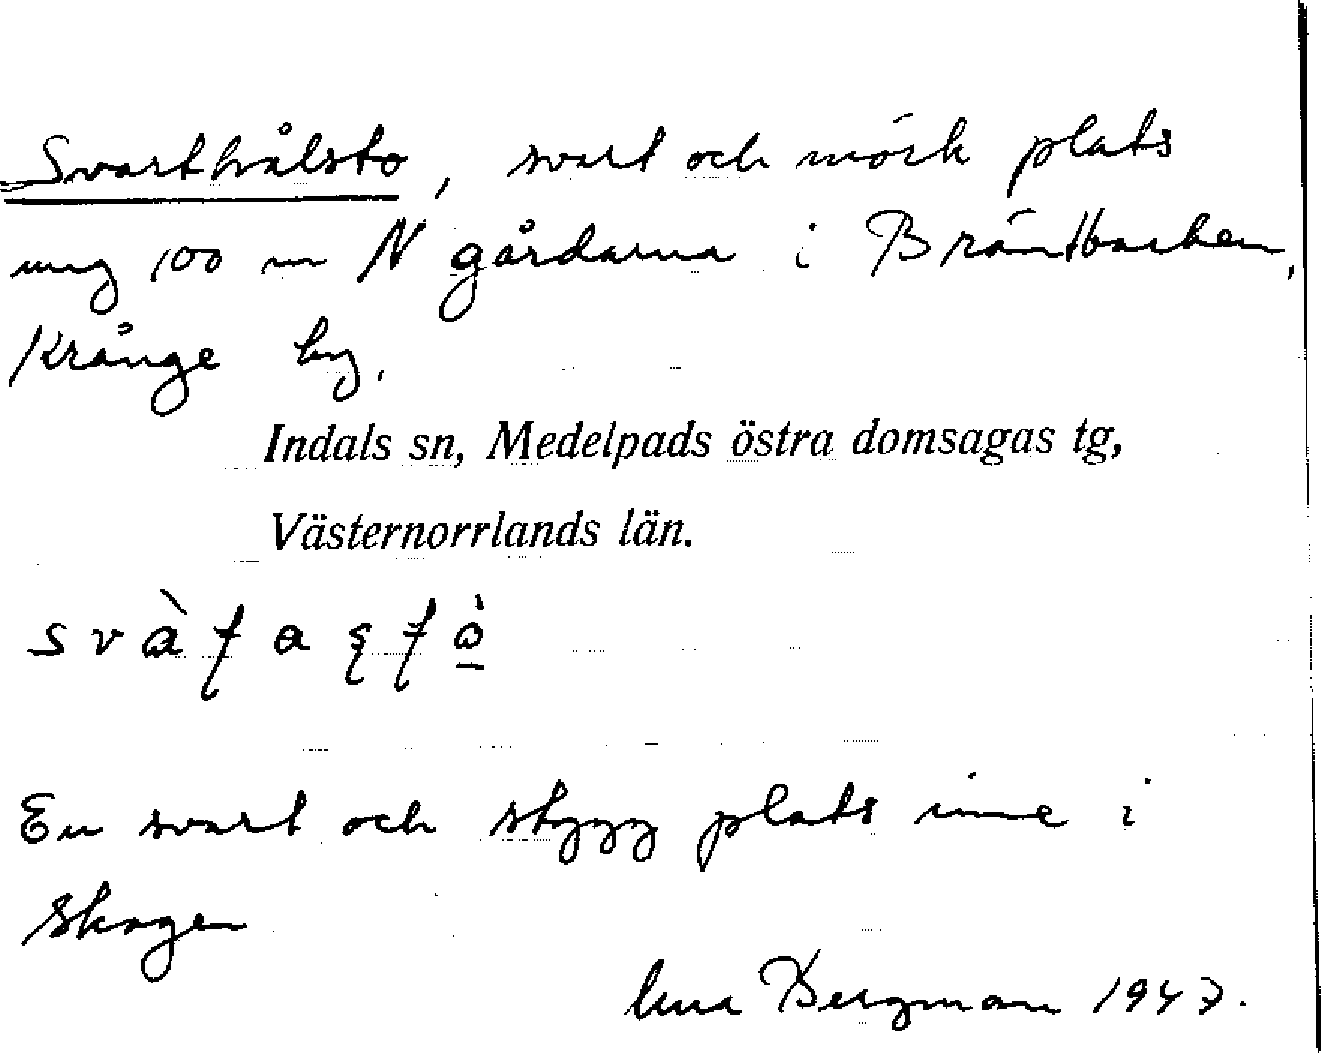 Svarthålsto, svart och mörk plats
ung 100 m N gårdarna i Bräntbacken,
Krånge by.
Indals sn, Medelpads östra domsagas tg,
Västernorrlands län.
En svart och skygg plats inne i
skogen
Bergman 1947.